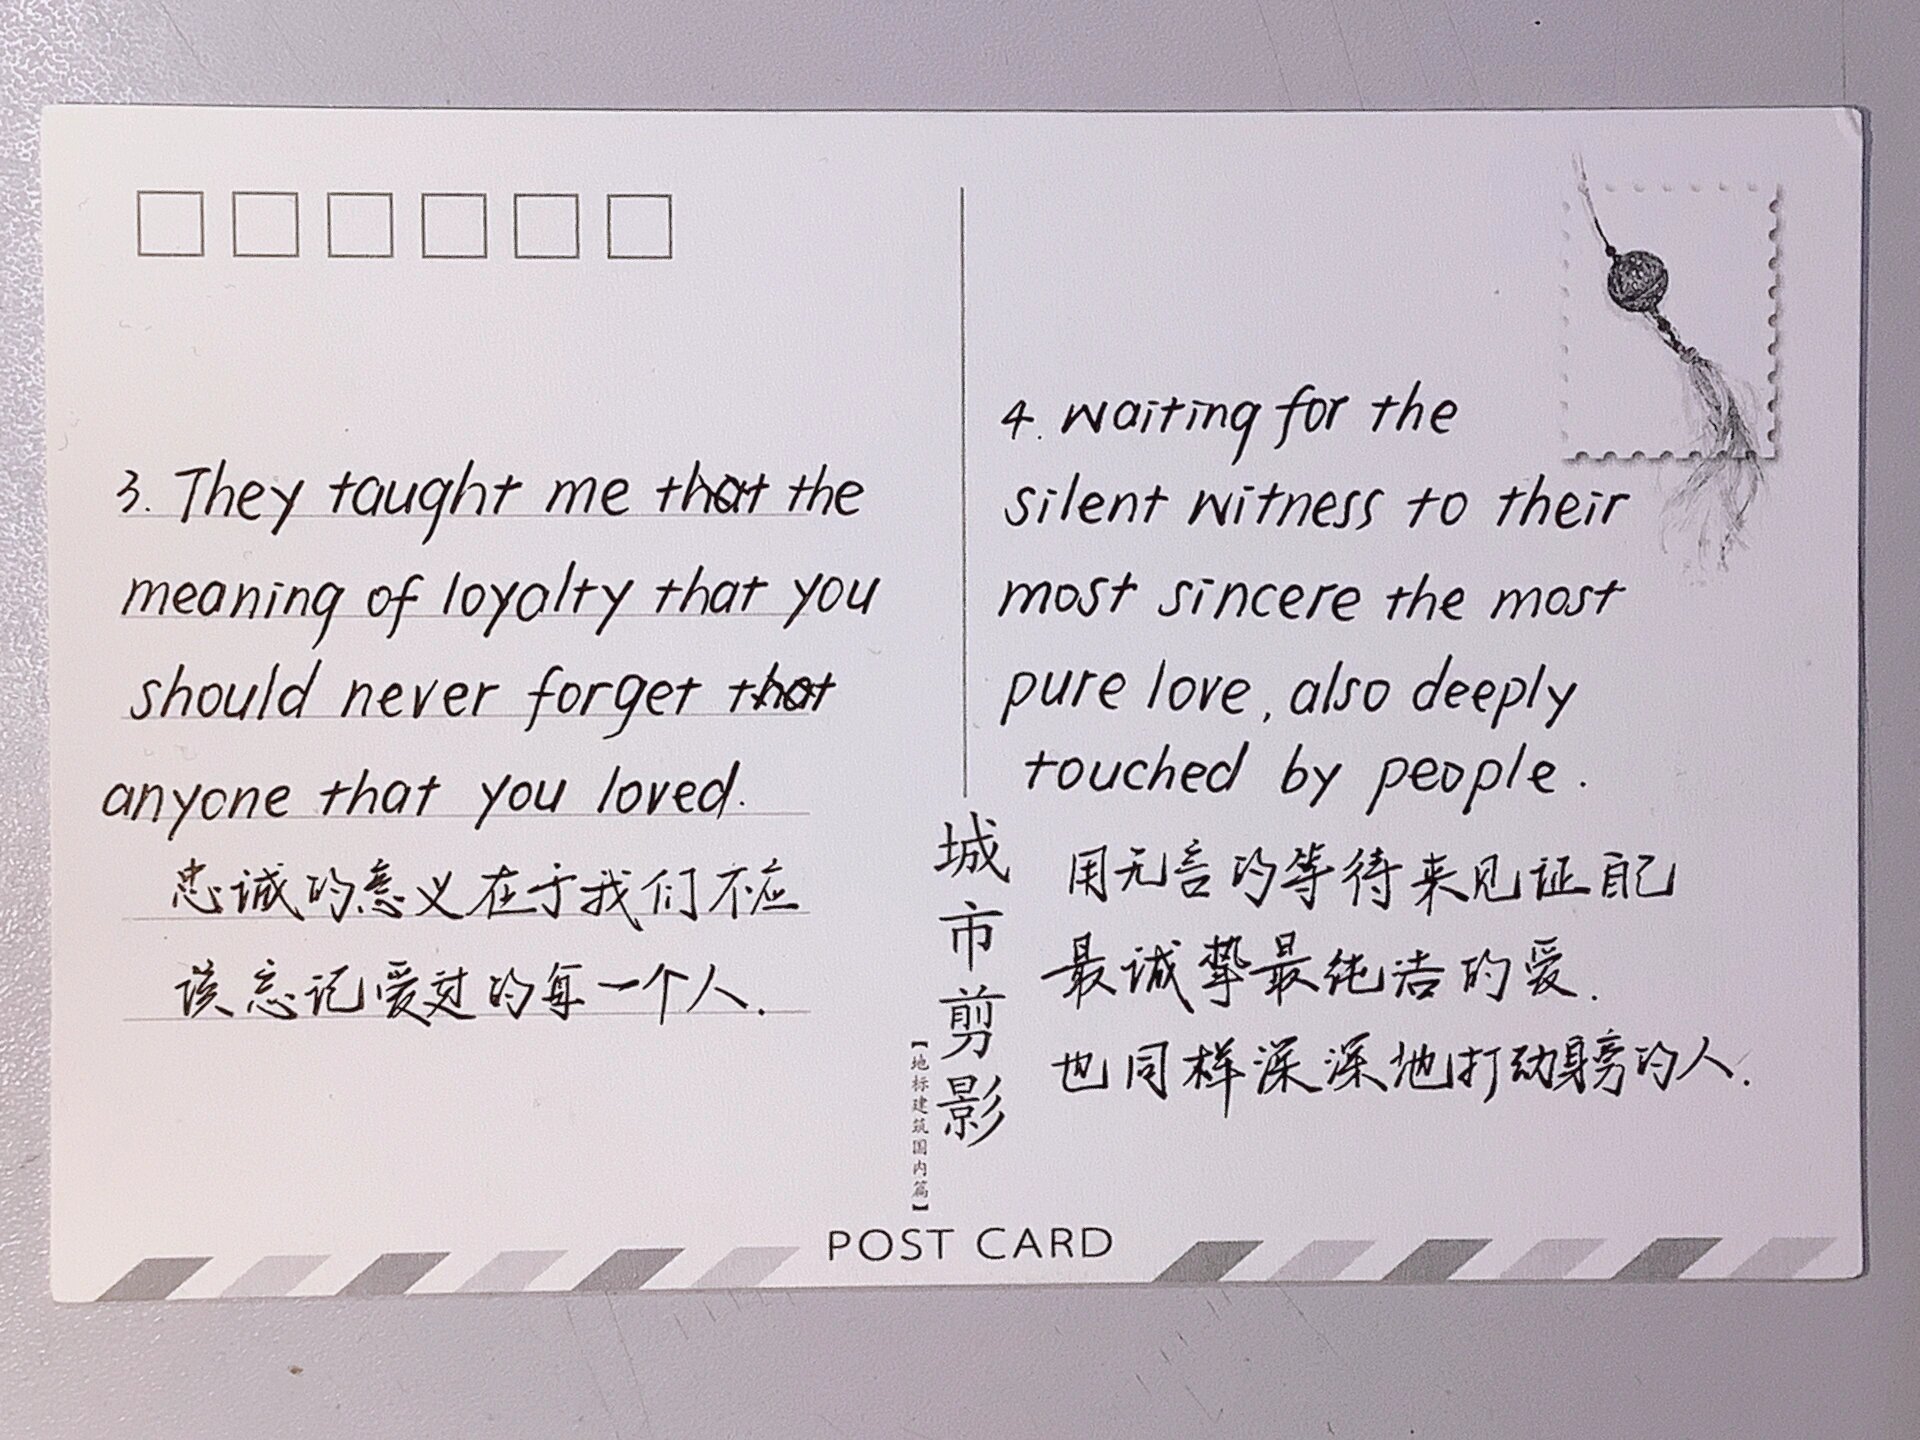 3. They taught me that the
meaning of loyalty that you
should never forget that
anyone that you loved.
忠诚的意义在于我们不应
该忘记爱过的每一个人.
4. Waiting for the
silent witness to their
most sincere the most
pure love, also deeply
touched by people.
用无言的等待来见证自己
最诚挚最纯洁的爱.
也同样深深地打动身旁的人.
城市剪影
【地标建筑国内篇】
POST CARD